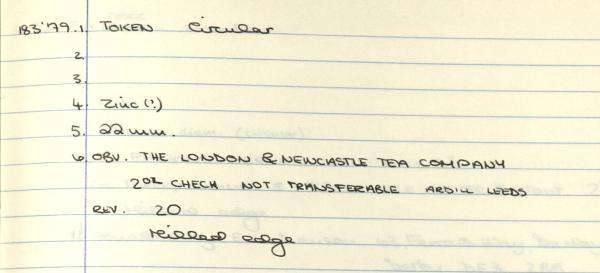 183'79.1. TOKEN Circular
2.
3.
4. Zinc (?)
5. 22 mm.
6. OBV. THE LONDON & NEWCASTLE TEA COMPANY
2OZ CHECK NOT TRANSFERABLE ARDILL LEEDS
REV. 20
Milled edge